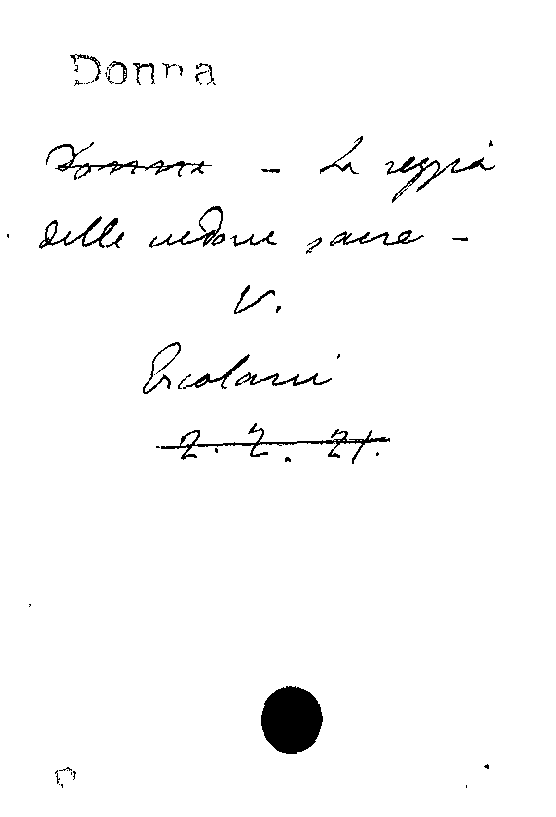 Donna
Donne - La reggia
delle vedove sacre -
V.
Ercolani
2. 2. 21.